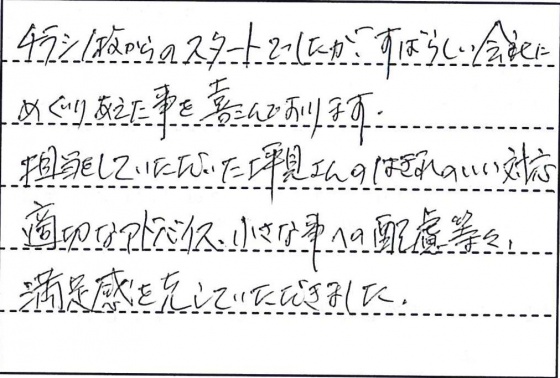 チラシ1枚からのスタートでしたが、すばらしい会社に
めぐりあえた事を喜こんでおります.
担当していただいた坪見さんのはぎれのいい対応
適切なアドバイス、小さな事への配慮等々、
満足感を充していただきました.